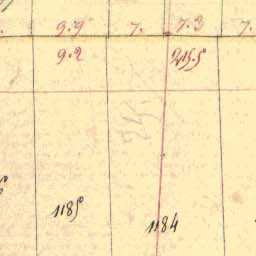 9.9 7. 7.3 7.
9.2
1185
1184